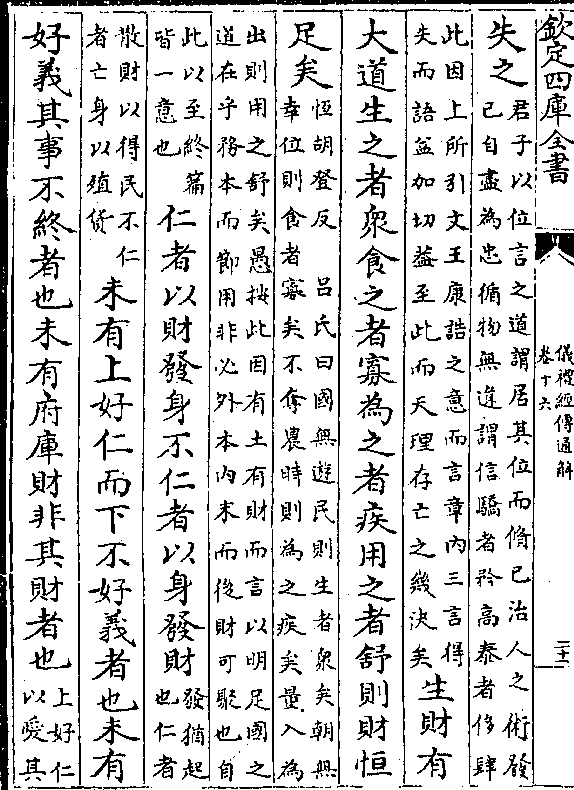 欽定四庫全書
儀禮經傳通解
卷十六
失之
君子以位言之道謂居其位而脩已治人之術發
已自盡為忠循物無違謂信驕者矜高泰者侈肆
此因上所引文王康誥之意而言章内三言得
失而語益加切葢至此而天理存亡之幾決矣
生財有
大道生之者衆食之者寡為之者疾用之者舒則財恒
足矣
恒胡登反 吕氏曰國無遊民則生者衆矣朝無
幸位則食者寡矣不奪農時則為之疾矣量入為
出則用之舒矣愚按此因有土有財而言以明足國之
道在乎務本而節用非必外本内末而後財可聚也自
此以至終篇
皆一意也
仁者以財發身不仁者以身發財
發猶起
也仁者
散財以得民不仁
者亡身以殖貨
未有上好仁而下不好義者也未有
好義其事不終者也未有府庫財非其財者也
上好仁
以愛其